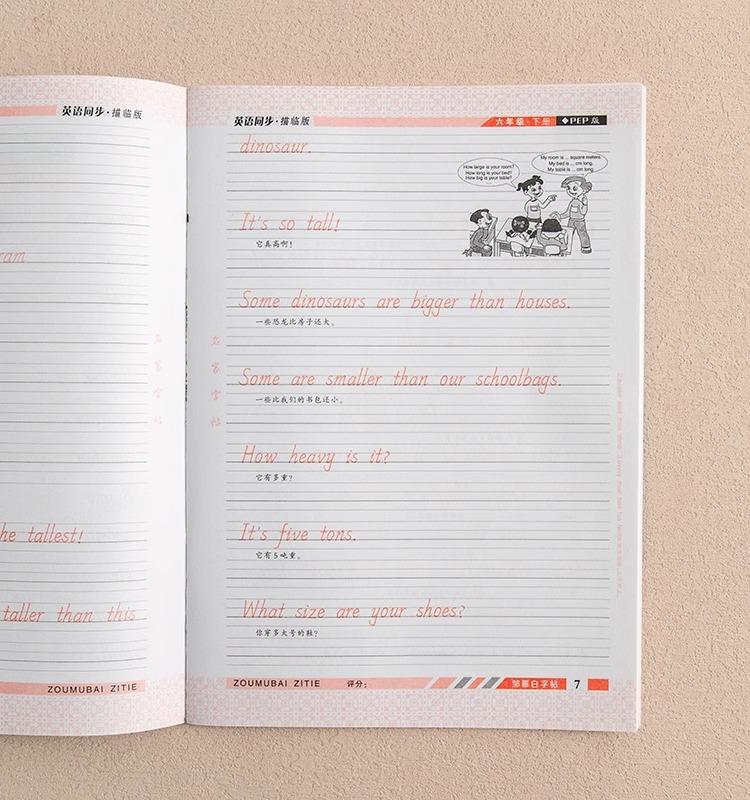 英语同步·描临版
ram
he tallest!
taller than this
ZOUMUBAI ZITIE
名家字帖
英语同步·描临版
六年级·下册 ◆PEP版
dinosaur.
How large is your room?
How long is your bed?
How big is your table?
My room is ... square meters.
My bed is ... cm long.
My table is ... cm long.
It's so tall!
它真高啊!
Some dinosaurs are bigger than houses.
一些恐龙比房子还大。
Some are smaller than our schoolbags.
一些比我们的书包还小。
How heavy is it?
它有多重?
It's five tons.
它有5吨重。
What size are your shoes?
你穿多大号的鞋?
名家字帖
ZOUMUBAI ZITIE 评分:
邹慕白字帖 7